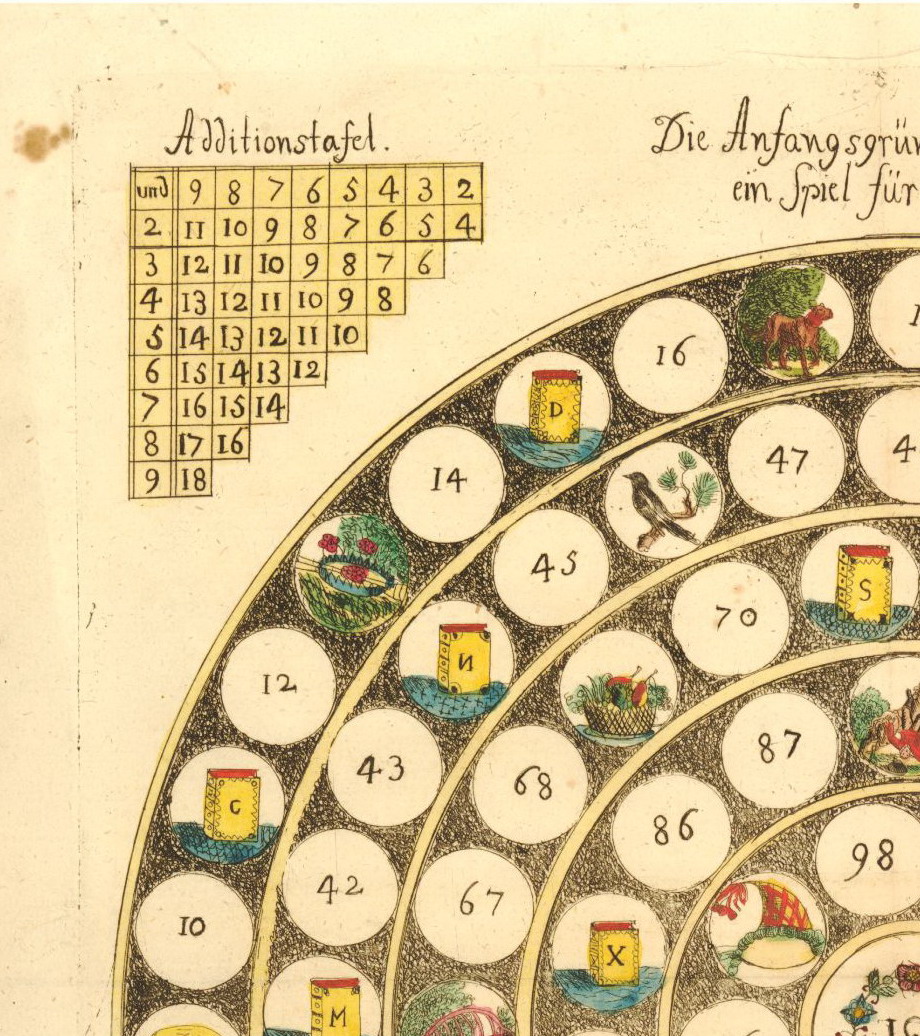 Additionstafel.
und 9 8 7 6 5 4 3 2
2 11 10 9 8 7 6 5 4
3 12 11 10 9 8 7 6
4 13 12 11 10 9 8
5 14 13 12 11 10
6 15 14 13 12
7 16 15 14
8 17 16
9 18
Die Anfangsgrün
ein Spiel für
16
D
14
47
45
12
И
S
70
43
C
68
87
86
42
98
67
10
X
M